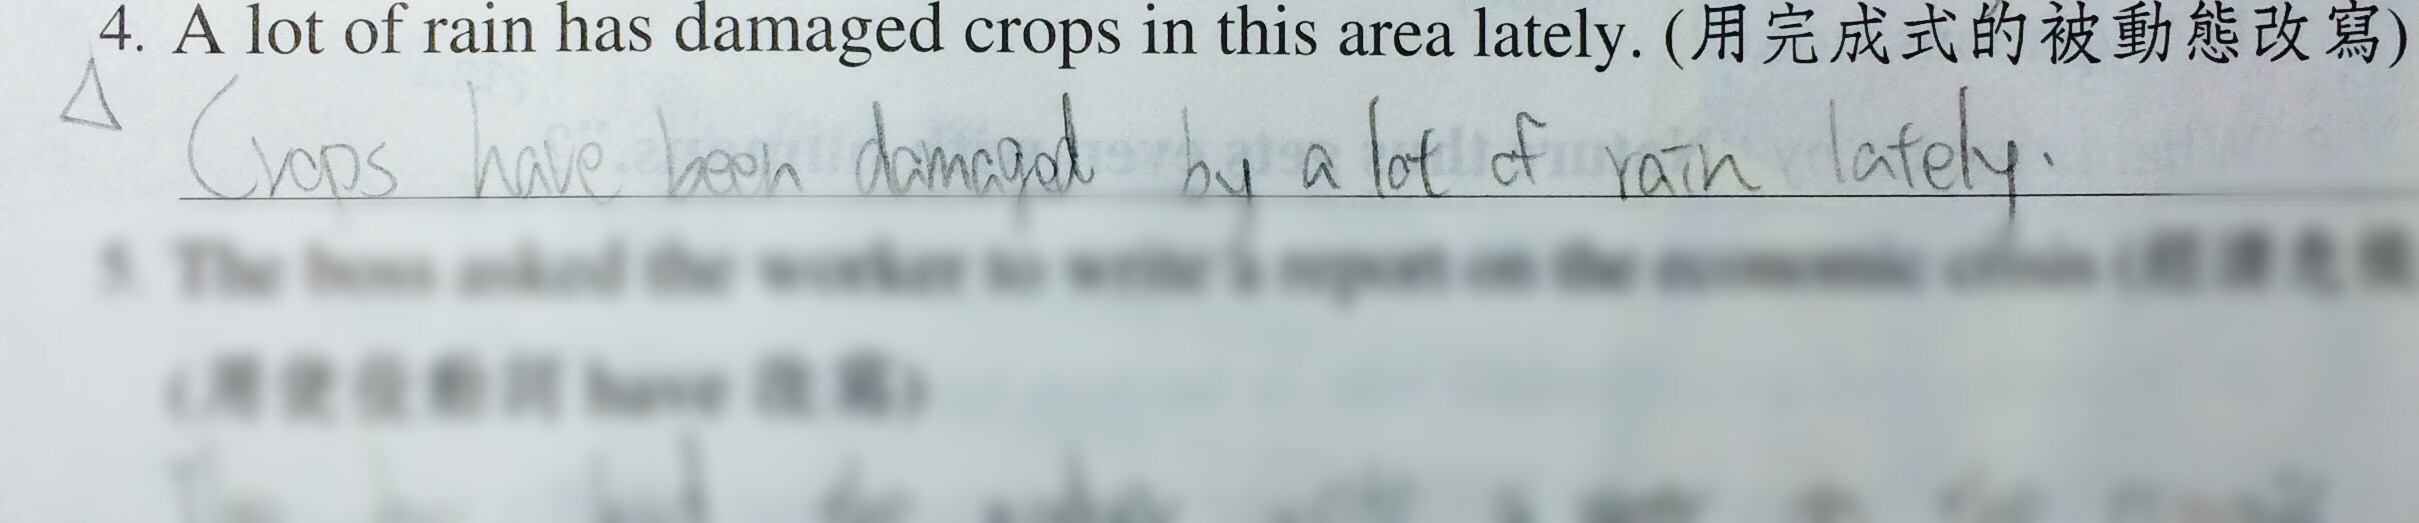 4. A lot of rain has damaged crops in this area lately. (用完成式的被動態改寫)
△ Crops have been damaged by a lot of rain lately.
5. The boss asked the worker to write a report on the economic crisis (經濟危機
(用使役動詞 have 改寫)